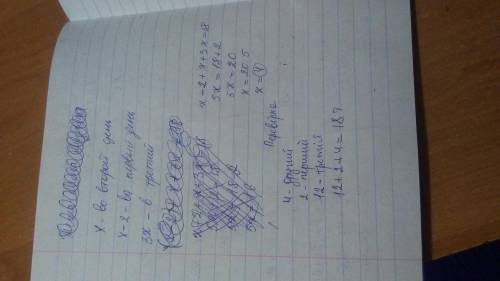 x во второй день
x-2 во первого день
3x - в третий
x-2+x+3x=18
5x=18+2
5x=20
x=20:5
x=4
Перевірка
4 - другий
2 - перший
12 - третій
12+2+4=18